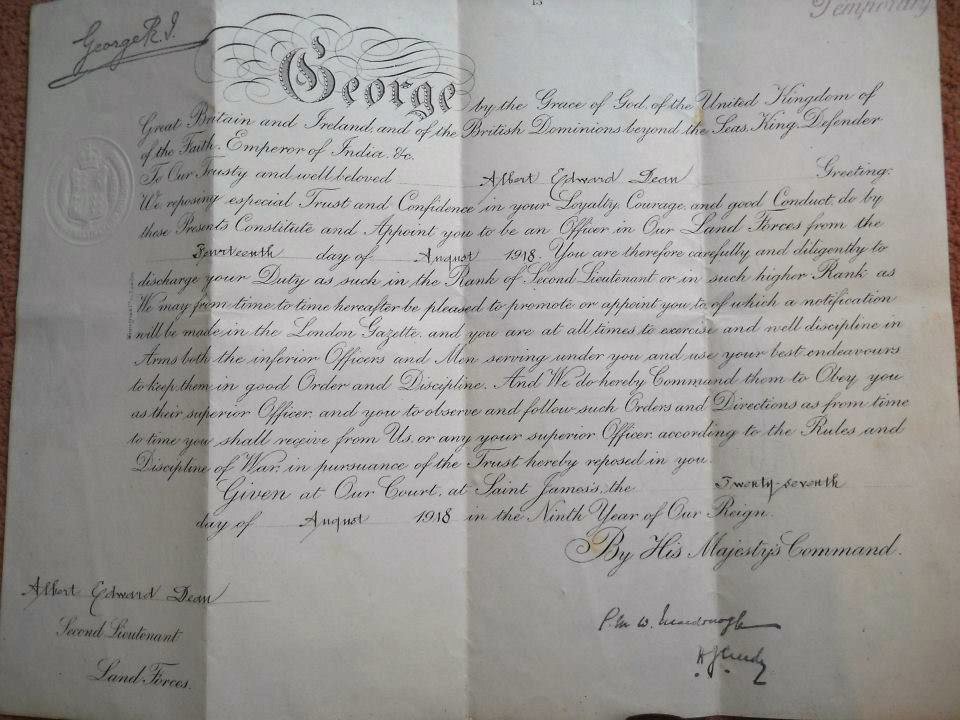 Temporary
George R.I.
George by the Grace of God, of the United Kingdom of
Great Britain and Ireland, and of the British Dominions beyond the Seas, King, Defender
of the Faith, Emperor of India, &c.
To Our Trusty and well beloved Albert Edward Dean Greeting:
We, reposing especial Trust and Confidence in your Loyalty, Courage, and good Conduct, do by
these Presents Constitute and Appoint you to be an Officer in Our Land Forces from the
Fourteenth day of August 1918. You are therefore carefully and diligently to
discharge your Duty as such in the Rank of Second Lieutenant or in such higher Rank as
We may from time to time hereafter be pleased to promote or appoint you to, of which a notification
will be made in the London Gazette, and you are at all times to exercise and well discipline in
Arms both the inferior Officers and Men serving under you and use your best endeavours
to keep them in good Order and Discipline. And We do hereby Command them to Obey you
as their superior Officer, and you to observe and follow such Orders and Directions as from time
to time you shall receive from Us, or any your superior Officer, according to the Rules and
Discipline of War, in pursuance of the Trust hereby reposed in you.
Given at Our Court, at Saint James's, the Twenty-seventh
day of August 1918 in the Ninth Year of Our Reign.
By His Majesty's Command.
Albert Edward Dean
Second Lieutenant
Land Forces.